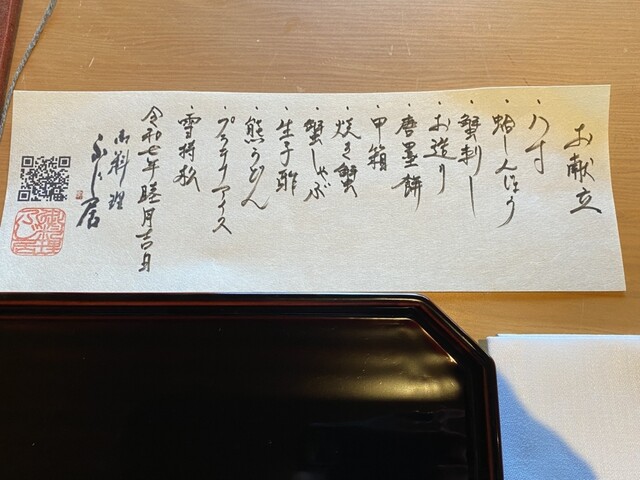 お献立
・八寸
・蛤しんじょう
・蟹刺し
・お造り
・唐墨餅
・甲箱
・焼き蟹
・蟹しゃぶ
・生子酢
・熊うどん
・プラチナアイス
・雪持松
令和七年睦月吉日
御料理
ふじ居